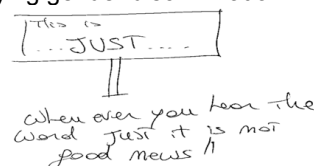 This is
...JUST....
when ever you hear the
word JUST it is not
good news !!